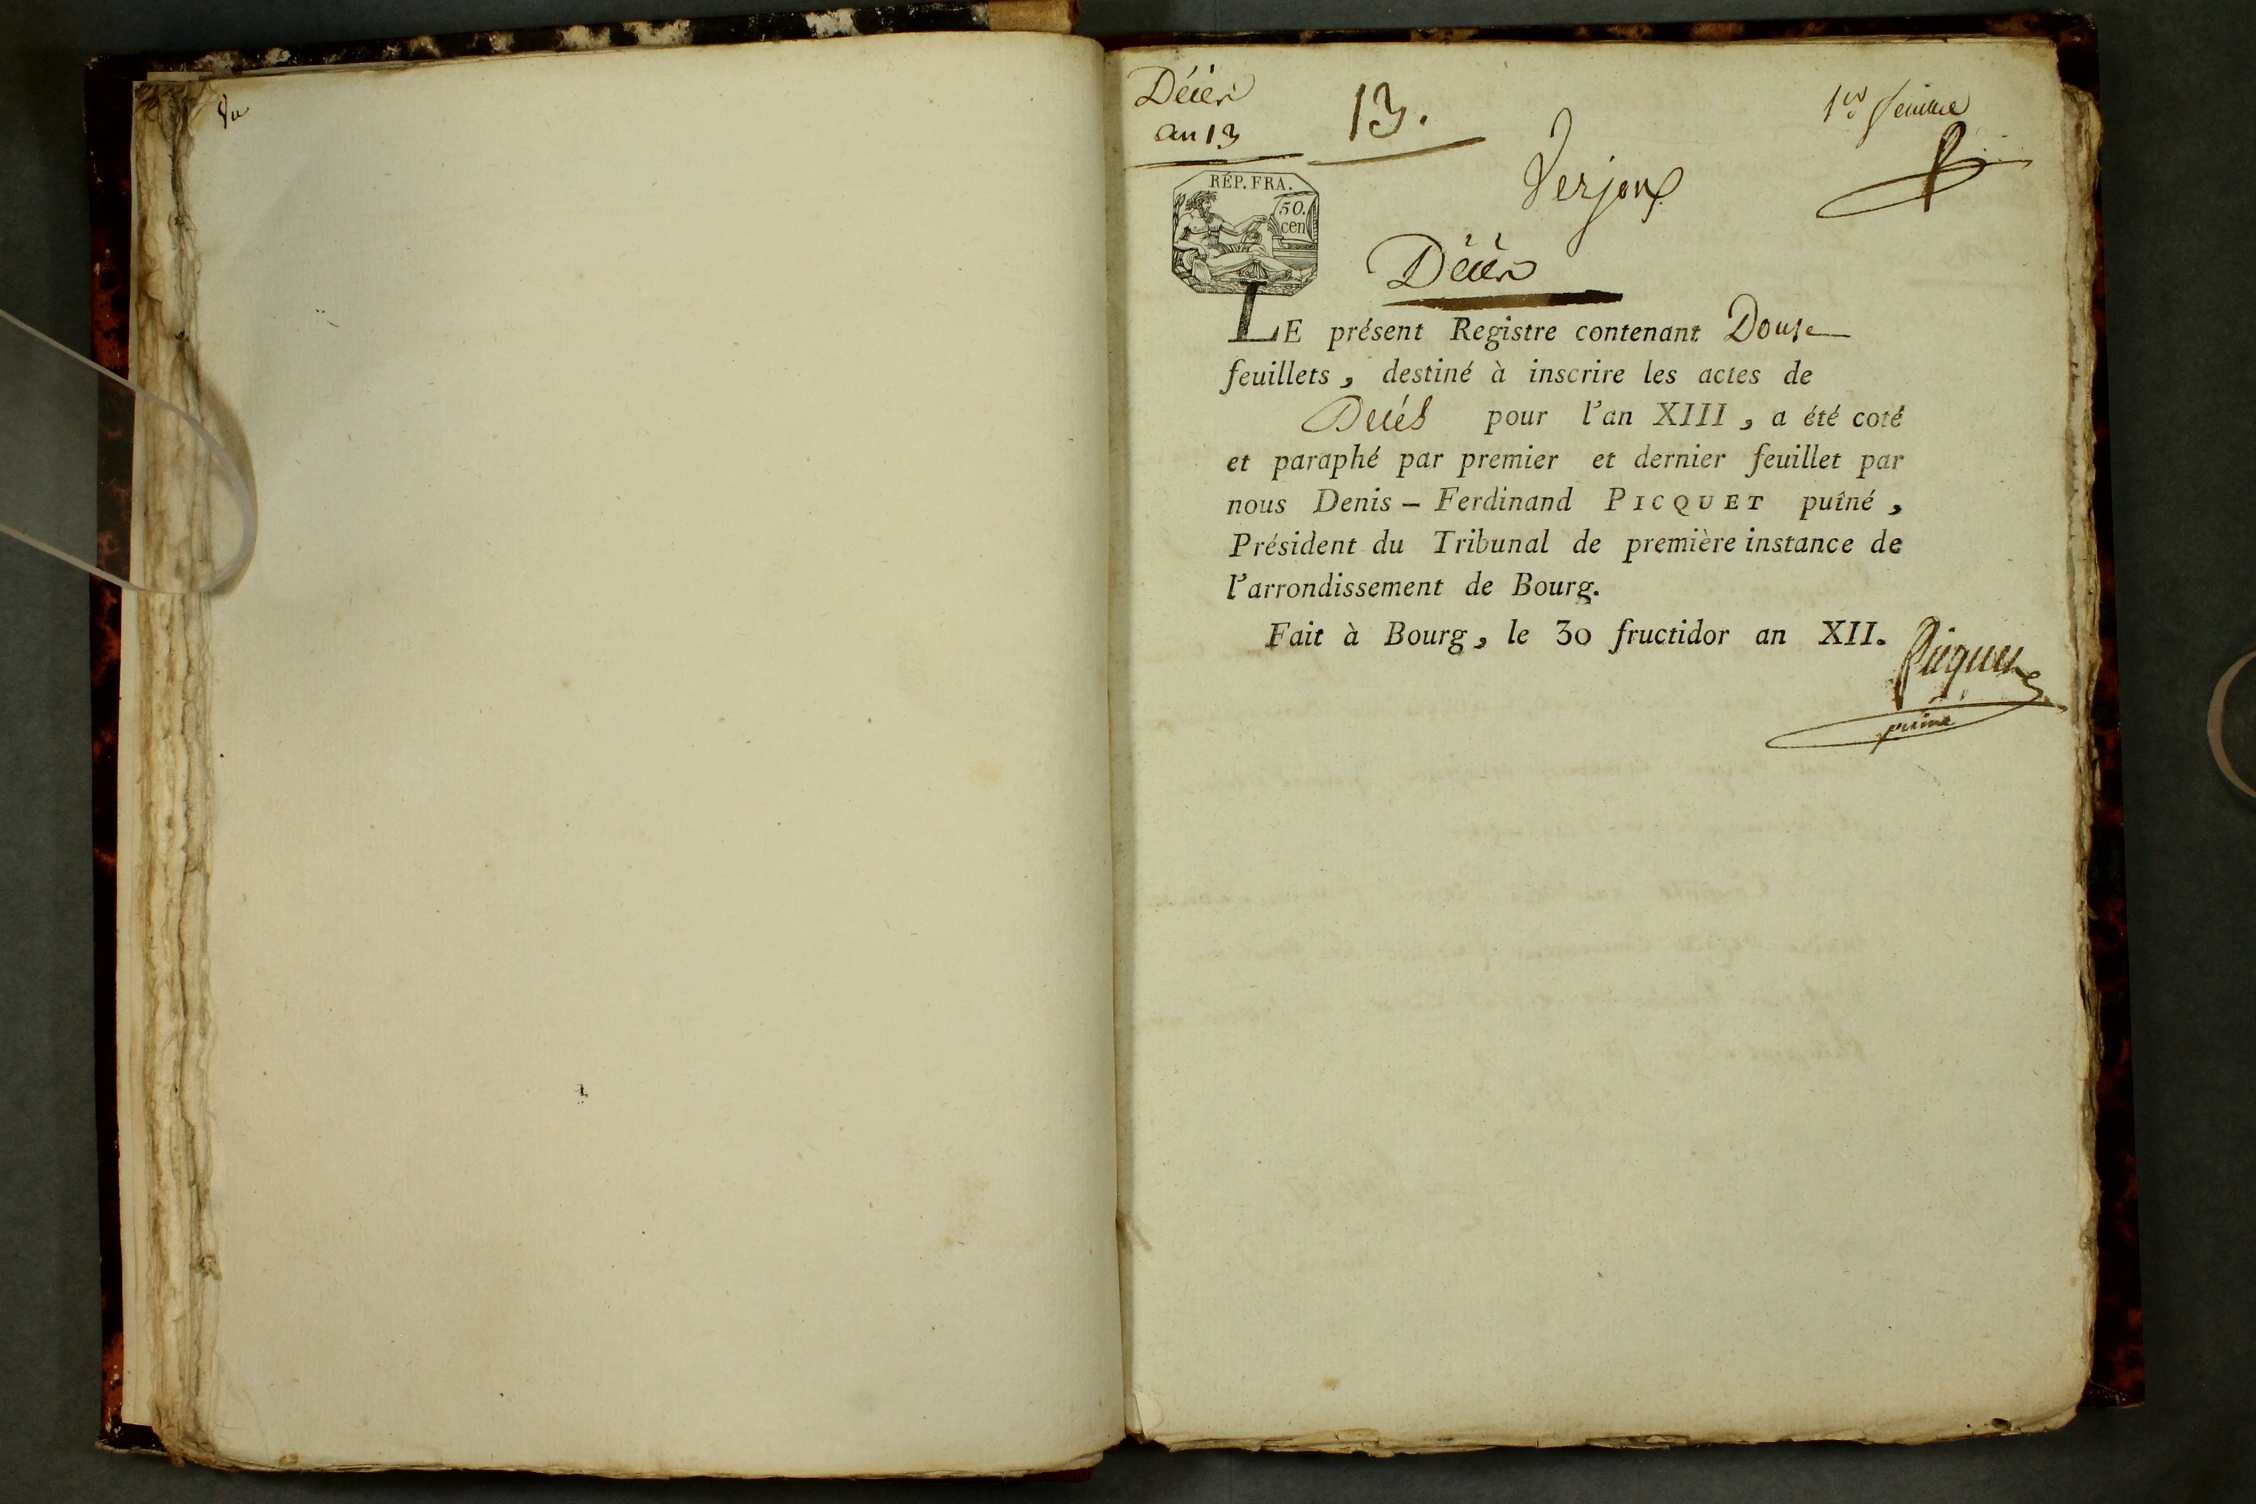 Décès
an 13
13.
1er feuillet
Verjon
RÉP. FRA.
50.
cen
Décès
LE présent Registre contenant Douze
feuillets, destiné à inscrire les actes de
Décès pour l'an XIII, a été coté
et paraphé par premier et dernier feuillet par
nous Denis-Ferdinand PICQUET puîné,
Président du Tribunal de première instance de
l'arrondissement de Bourg.
Fait à Bourg, le 30 fructidor an XII.
Picquet
puîné